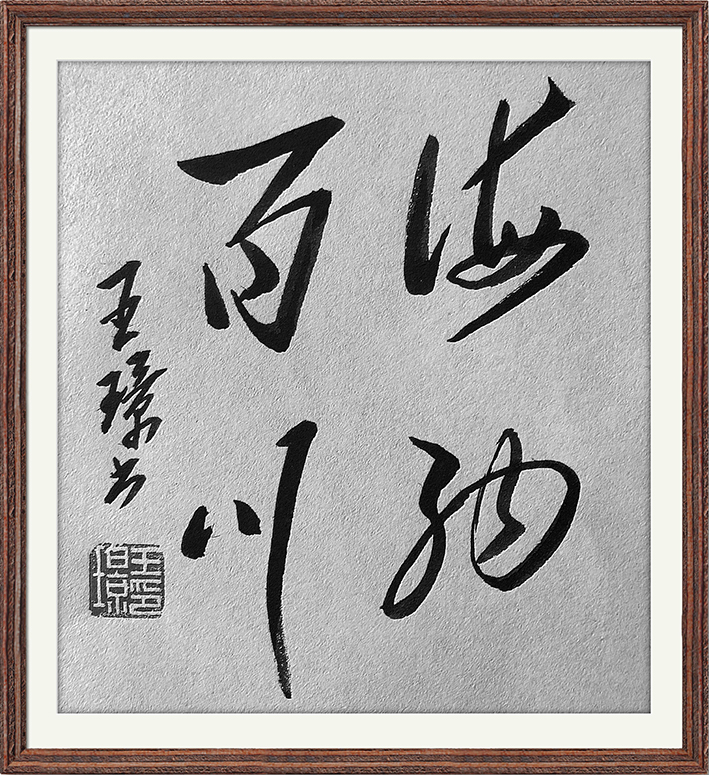 海纳
百川
王璟书
王印
璟